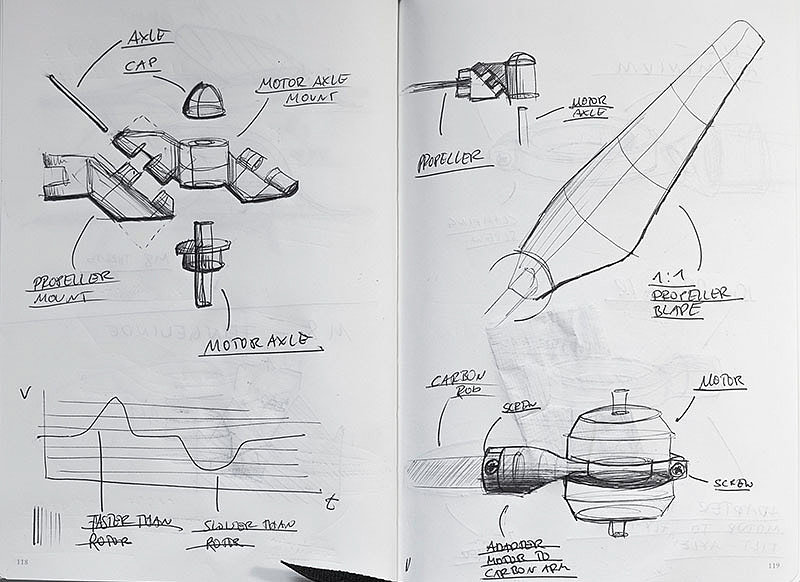 AXLE
CAP
MOTOR AXLE
MOUNT
PROPELLER
MOUNT
MOTOR AXLE
V
t
FASTER THAN
ROTOR
SLOWER THAN
ROTOR
118
MOTOR
AXLE
PROPELLER
1:1
PROPELLER
BLADE
CARBON
ROD
SCREW
MOTOR
SCREW
ADAPTER
MOTOR TO
CARBON ARM
V
119